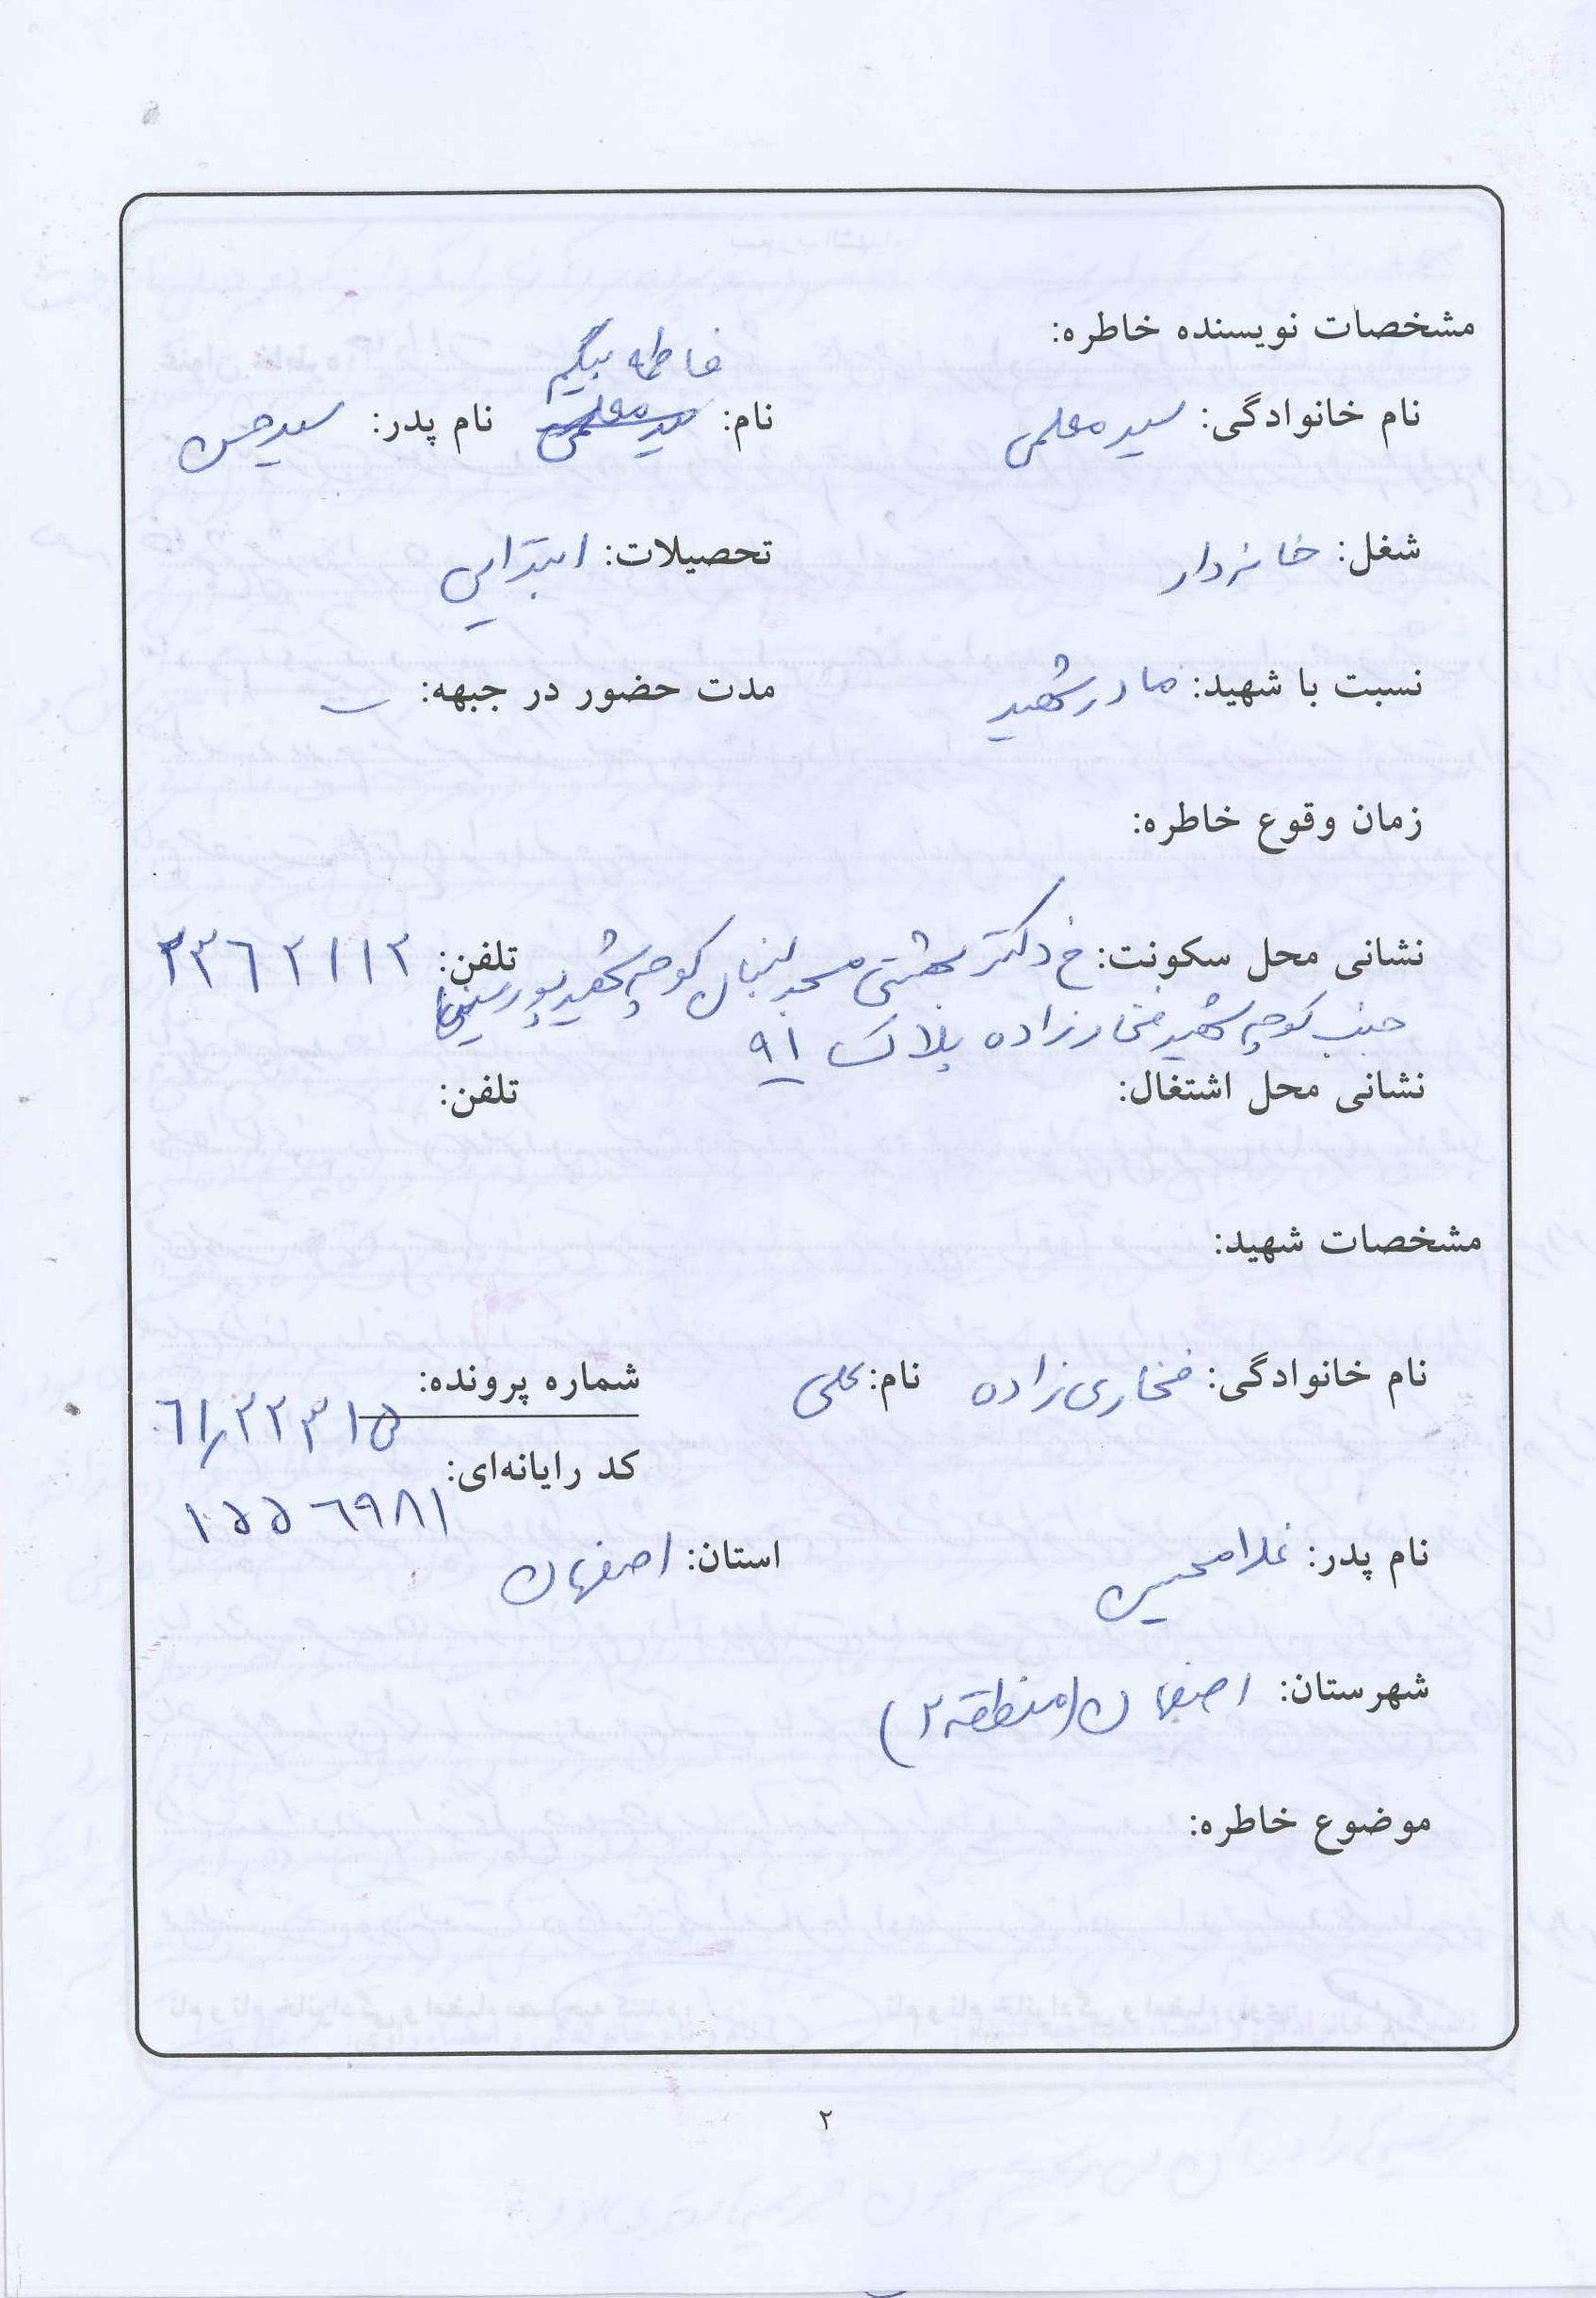 مشخصات نویسنده خاطره:
فاطمه بیگم
نام خانوادگی: سید معلمی نام: سید معلمی نام پدر: سید حسن
شغل: خانه‌دار تحصیلات: ابتدایی
نسبت با شهید: مادر شهید مدت حضور در جبهه: –
زمان وقوع خاطره:
نشانی محل سکونت: خ دکتر بهشتی مسجد لنبان کوچه شهید تلفن: ۲۳۶۲۱۱۳
جنب کوچه شهید فخارزاده پلاک ۹۱
نشانی محل اشتغال: تلفن:
مشخصات شهید:
نام خانوادگی: فخاری‌زاده نام: علی شماره پرونده:
کد رایانه‌ای:
۱۵۵۶۹۸۱
نام پدر: غلامحسین استان: اصفهان
شهرستان: اصفهان (منطقه ۲)
موضوع خاطره:
۲